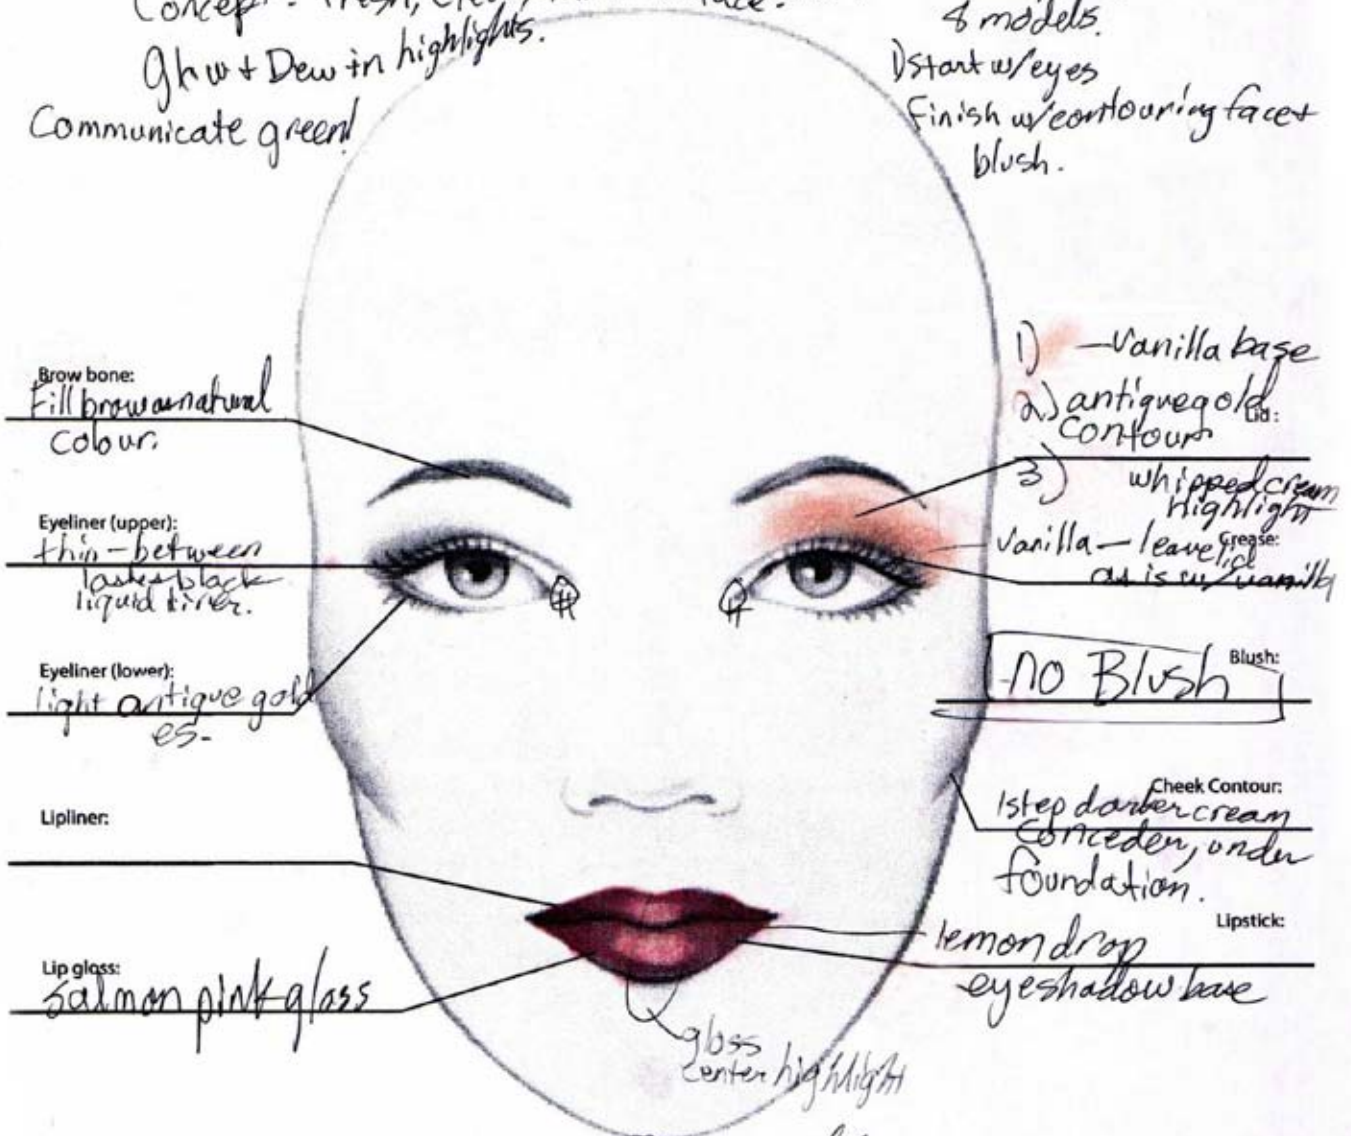 Concept: Fresh,
face.
Glow + Dew in highlights.
Communicate green!
8 models.
1) start w/eyes
Finish w/contouring face +
blush.
Brow bone:
Fill brow as natural
colour.
Eyeliner (upper):
thin - between
lashes black
liquid liner.
Eyeliner (lower):
light antique gold
es-
Lipliner:
Lip gloss:
Salmon pink gloss
1) - Vanilla base
2) antique gold
Lid:
contour
3) whipped cream
highlight
Crease:
Vanilla - leave lid
as is w/vanilla
Blush:
no Blush
Cheek Contour:
1 step darker cream
conceder, under
foundation.
Lipstick:
lemon drop
eyeshadow base
gloss
center highlight